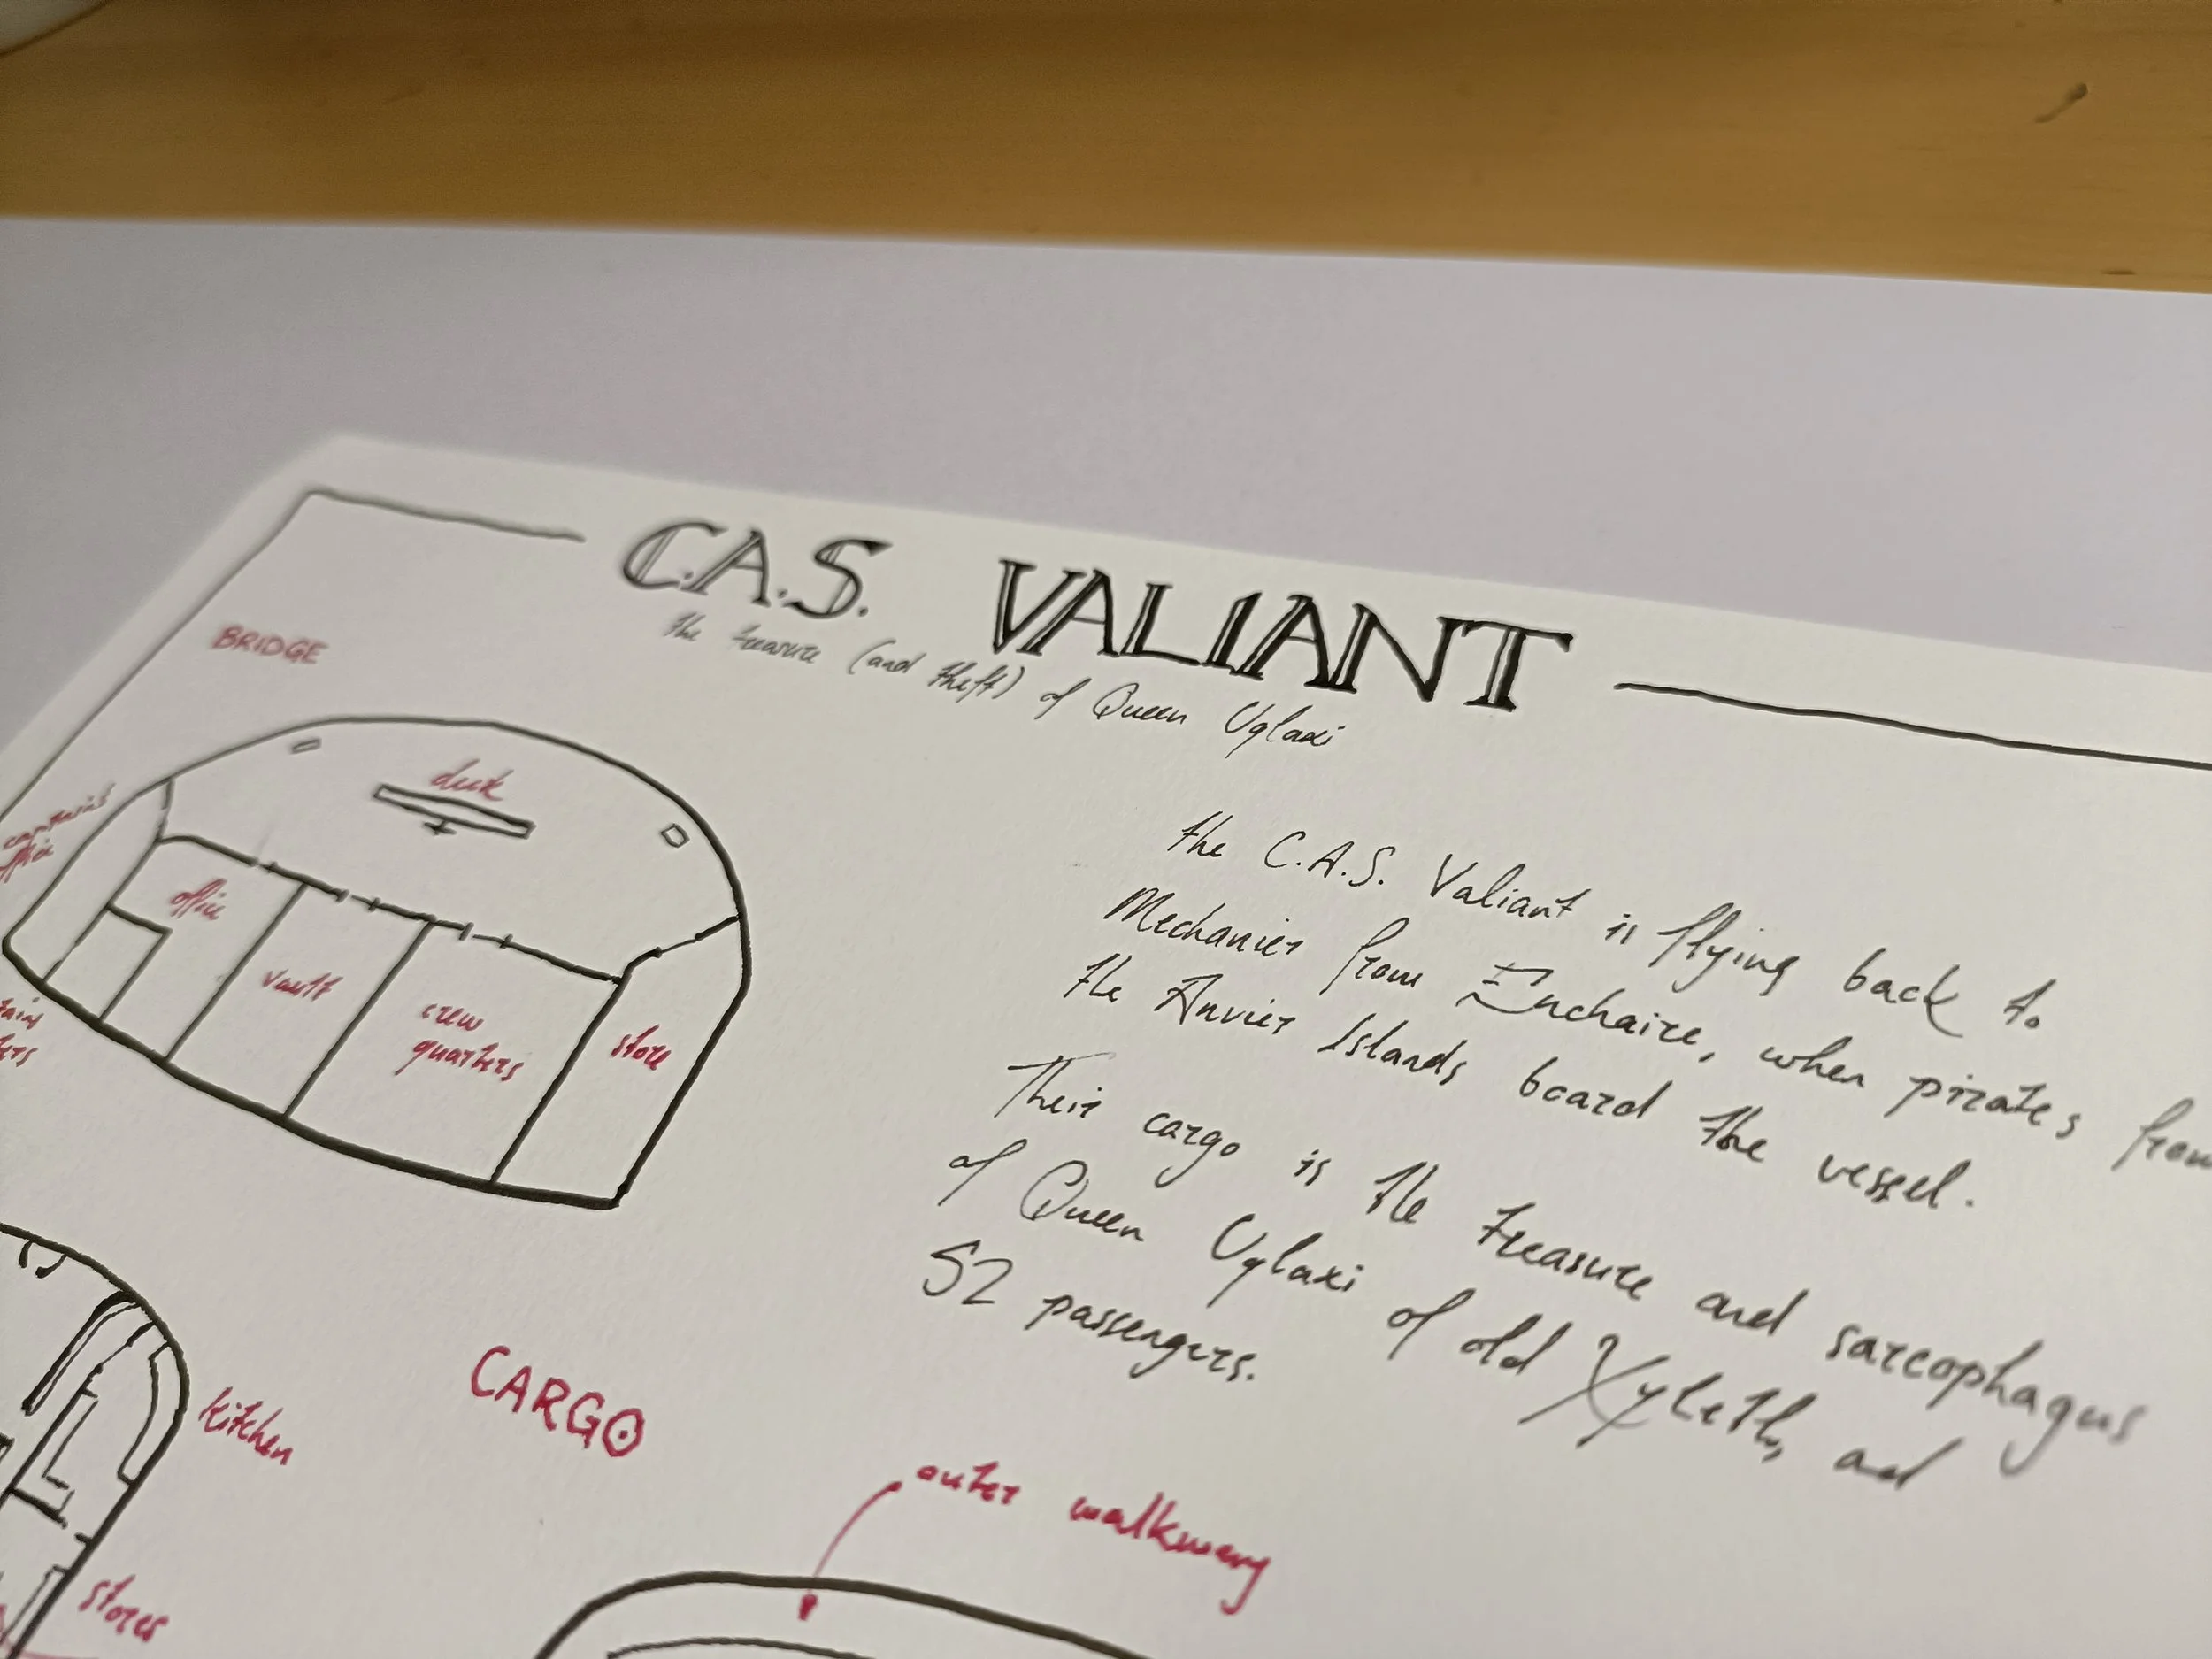 C.A.S. VALIANT
the treasure (and theft) of Queen Uglaxi
BRIDGE
desk
office
vault
crew
quarters
store
the C.A.S. Valiant is flying back to
Mechanier from Enchaire, when pirates from
the Anvier Islands board the vessel.
Their cargo is the treasure and sarcophagus
of Queen Uglaxi of old Xyleth, and
52 passengers.
CARGO
kitchen
stores
outer walkway